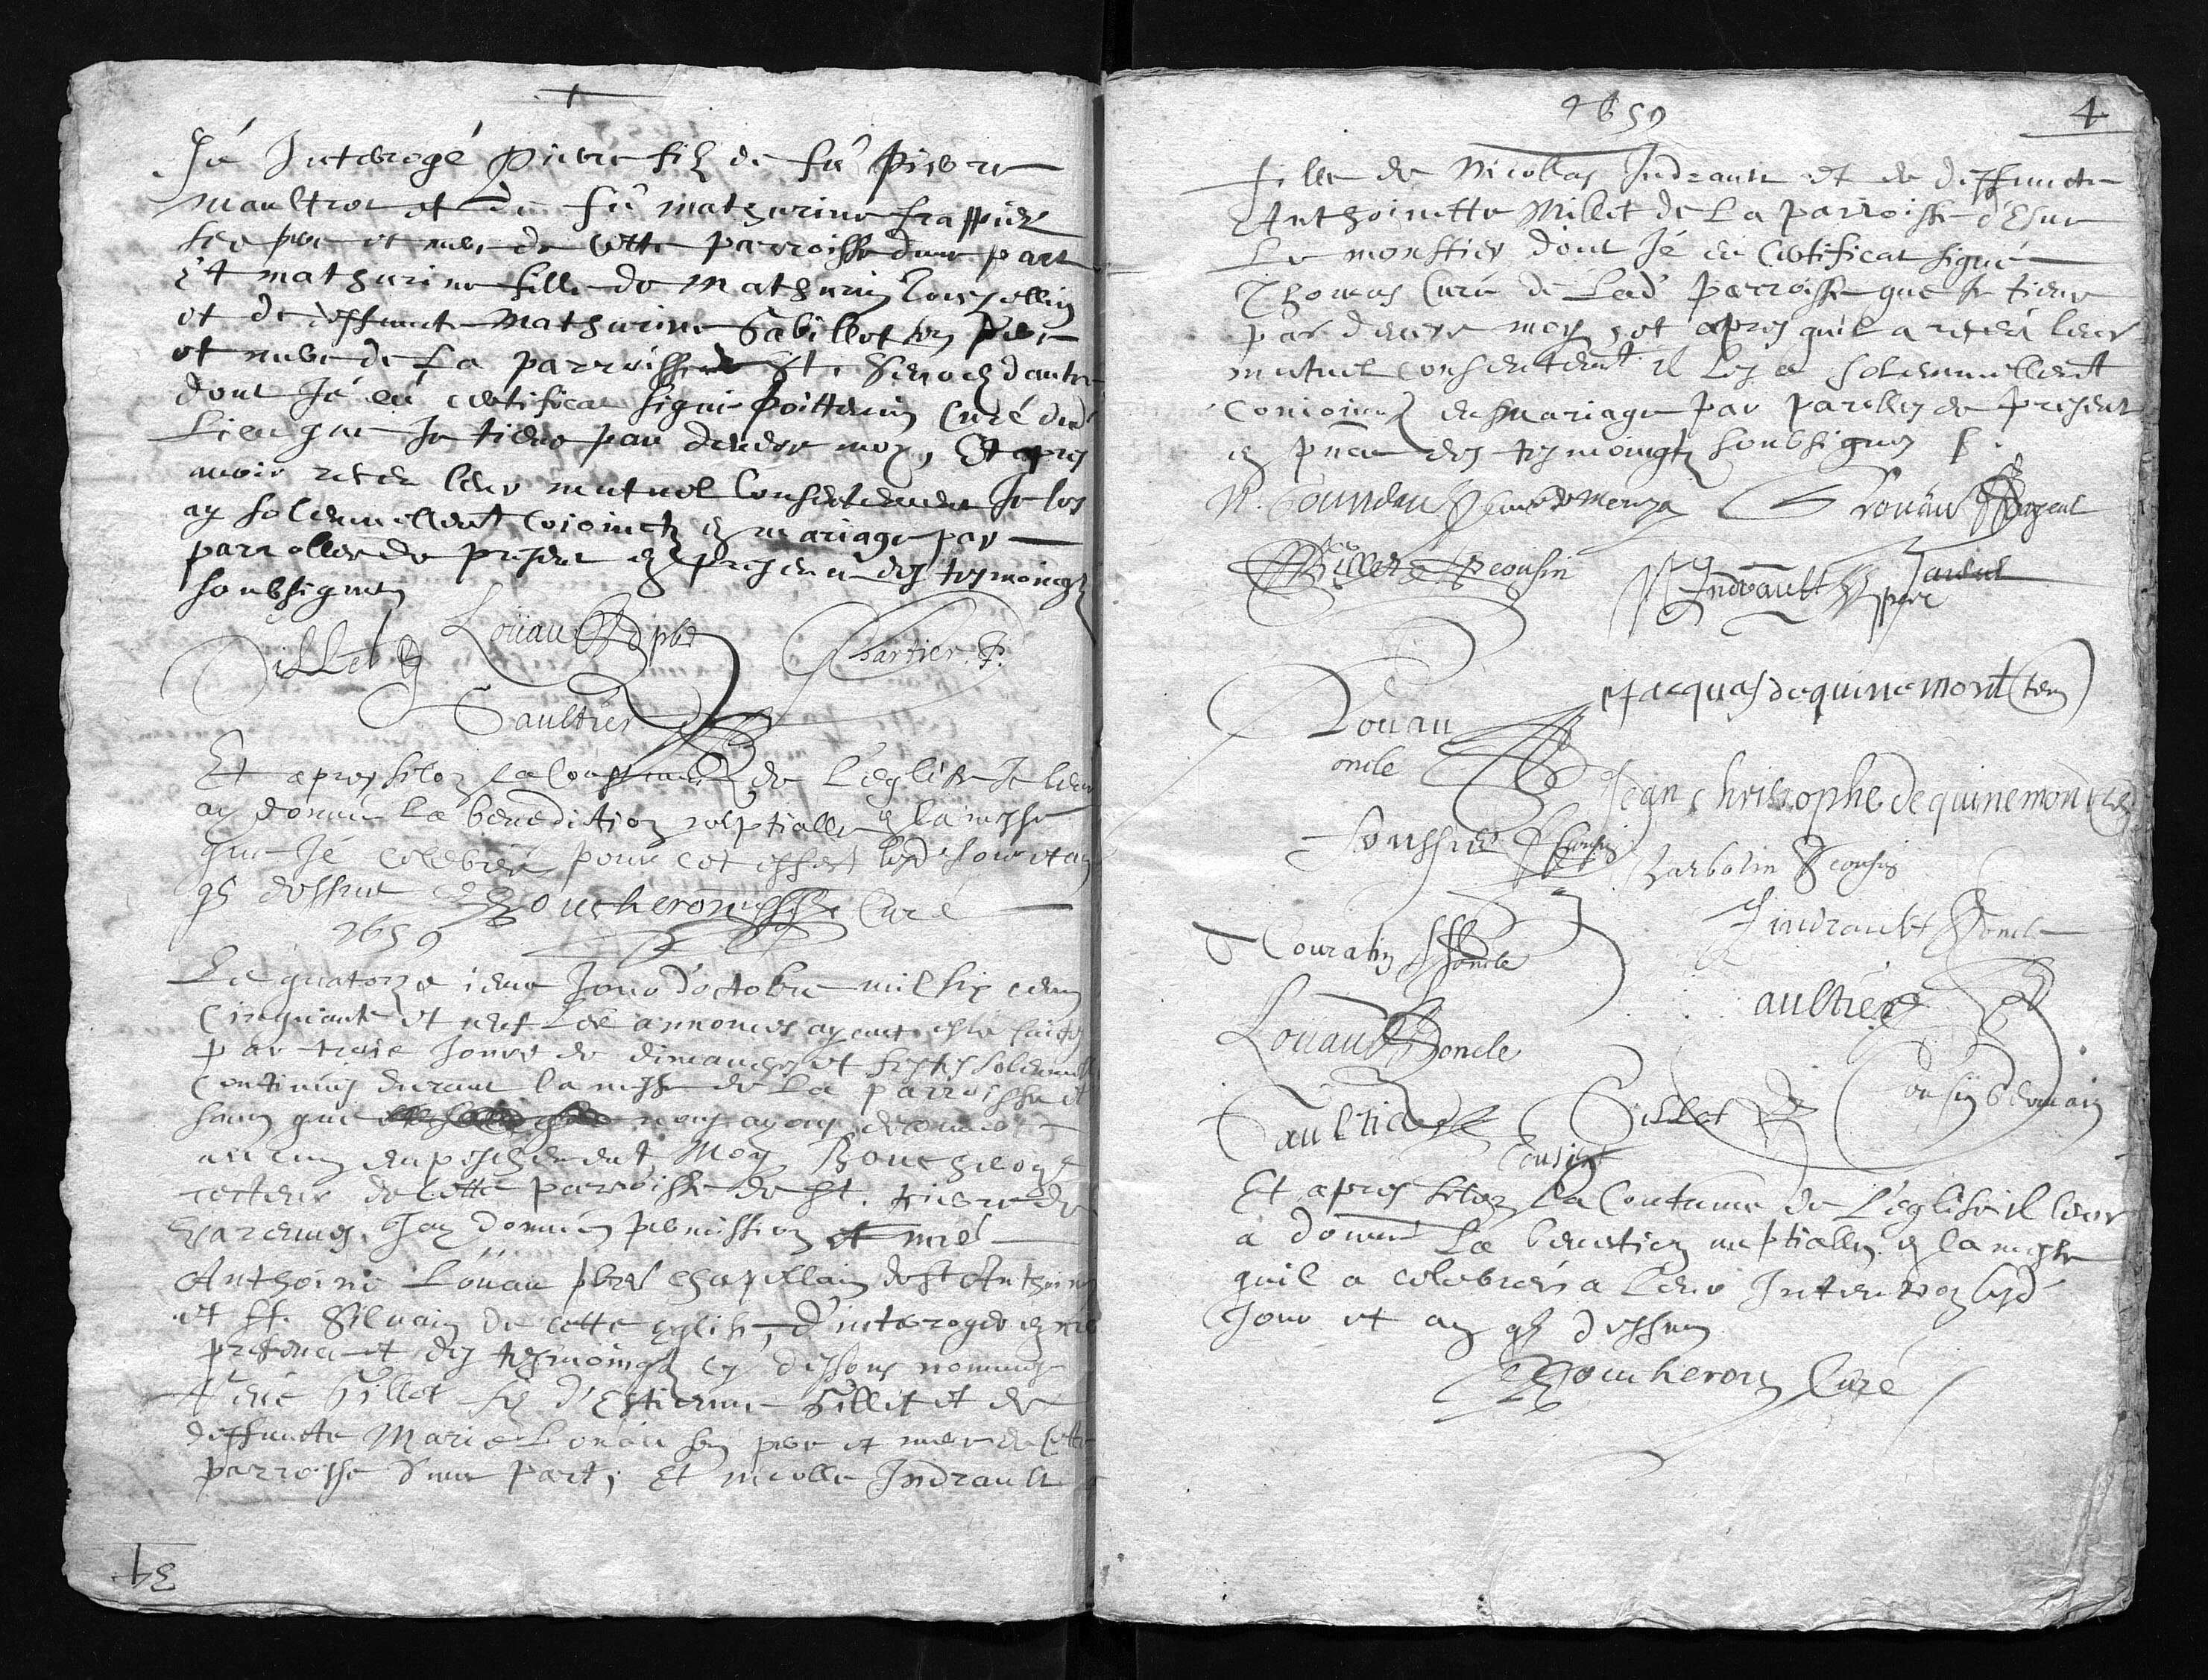 Jé Interogé pierre filz de fû Pierre
maultrot et de fû mathurine frappier
ses pere et mere de cette parroisse dune part
Et mathurine fille de Mathurin
et de deffuncte Mathurine Gabillot ses pere
et mere de la parroisse de St. Senoch dautre
dont Jé eû certificat signé Poittevin Curé dud
Lieu que Je tiens par devers moy, Et apres
avoir receu leur mutuel Consentement Je les
ay solennellement coioinctz en mariage par
parrolles de present en presence des tesmoings
soubsignez
Gillet Louau pbre Chartier. P.
Gaultier
Et apres selon la Coustume de L'eglise Je leur
ay donné la benediction nuptialle en la messe
que Jé celebréé pour cet effect lesd Jour et an
q dessus Boucheron Curé
1659
Le quatorze ieme Jour d'octobre mil six cens
Cinquante et neuf Les annonces ayant esté faictes
par trois Jours de dimanches et festes solennelles
Continuës durant la messe de La parroisse et
sans que nous ayons decouvert
aucun empeschement Moy Boucheron
recteur de cette parroisse de St. pierre de
Varennes Jay donnée permission et mre
Anthoine Louau pbre chapellain de St Anthoine
et St. Silvain de cette eglise, D'interoger en ma
presence et des tesmoings cy dessous nommés
René Gillet filz d'Estienne Gillet et de
deffuncte Marie Louau ses pere et mere de cette
parroisse d'une part; Et nicolle Indrault
1659
4
fille de Nicollas Indrault et de deffuncte
Anthoinette Millet de La parroisse d'Esve
Le monstier dont Jé eû Certificat signé
Thomas Curé de Lad parroisse que Je tiens
par devers moy, et apres quil a receu leur
mutuel consentement il les a solennellement
Conioinctz en mariage par parolles de present
en pnce des tesmoingtz soubsignez
R. Louau
Gillet cousin N Indrault pere
Jacques de quinemont
Louau
oncle
Jean christophe de quinemont
cousin
Barbotin cousin
Couratin oncle
J indrault oncle
Louau oncle
Gaultier
cousin Germain
Gaultier Gillet
cousin
Et apres selon la Coutume de L'eglise il leur
a donné La benediction nuptialle en la messe
quil a celebréé a leur Intention lesd
Jour et an q dessus
Boucheron Curé